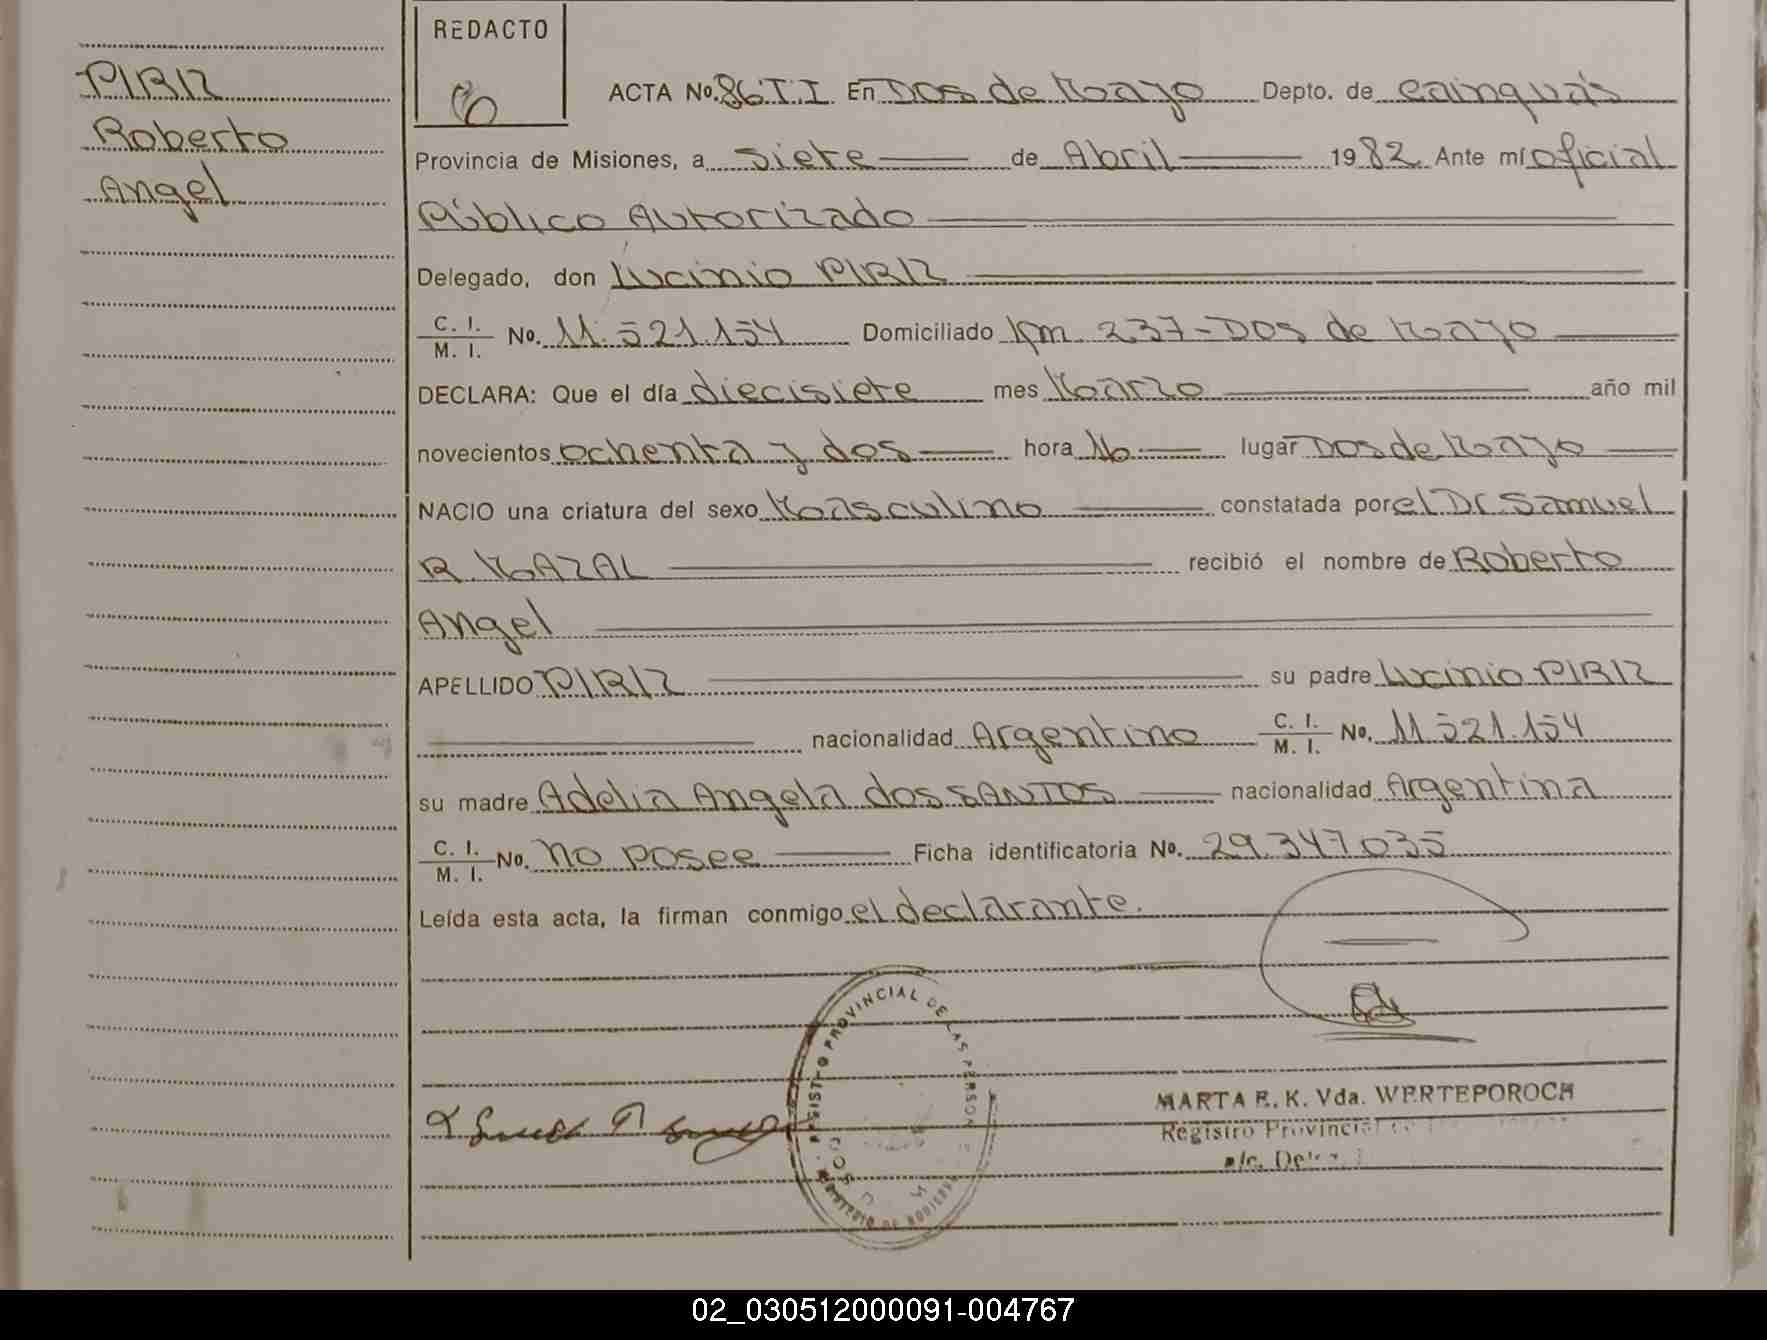 PIRIZ
Roberto
Angel
REDACTO
ACTA No. 86 T. I. En Dos de Mayo Depto. de Cainguás
Provincia de Misiones, a siete de Abril 1982. Ante mí oficial
Público Autorizado
Delegado, don Lucinio PIRIZ
C. I. / M. I. No. 11.521.154 Domiciliado Km. 237-Dos de Mayo
DECLARA: Que el día diecisiete mes Marzo año mil
novecientos ochenta y dos hora 16 lugar Dos de Mayo
NACIO una criatura del sexo Masculino constatada por el Dr. Samuel
R. MAZAL recibió el nombre de Roberto
Angel
APELLIDO PIRIZ su padre Lucinio PIRIZ
nacionalidad Argentino C. I. / M. I. No. 11.521.154
su madre Adelia Angela dos SANTOS nacionalidad Argentina
C. I. / M. I. No. no posee Ficha identificatoria No. 29.347.035
Leída esta acta, la firman conmigo el declarante.
REGISTRO PROVINCIAL DE LAS PERSON
MARTA E. K. Vda. WERTEPOROCH
Registro Provincial
02_030512000091-004767